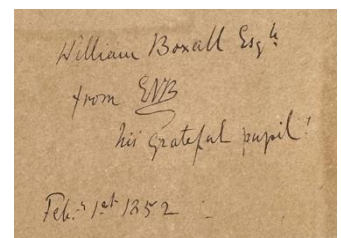 William Boxall Esqre
from EVB
his grateful pupil!
Feb.y 1st 1852